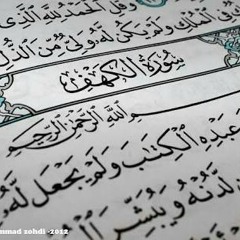 وَقُلِ ٱلْحَمْدُ لِلَّهِ ٱلَّذِى
ٱلْمُلْكِ وَلَمْ يَكُن لَّهُۥ وَلِىٌّ مِّنَ ٱلذُّلِّ
سُورَةُ الكَهْفِ
ٱللَّهِ ٱلرَّحْمَٰنِ ٱلرَّحِيمِ
عَبْدِهِ ٱلْكِتَٰبَ وَلَمْ يَجْعَل لَّهُۥ
لَّدُنْهُ وَيُبَشِّرَ
mmad zohdi -2012